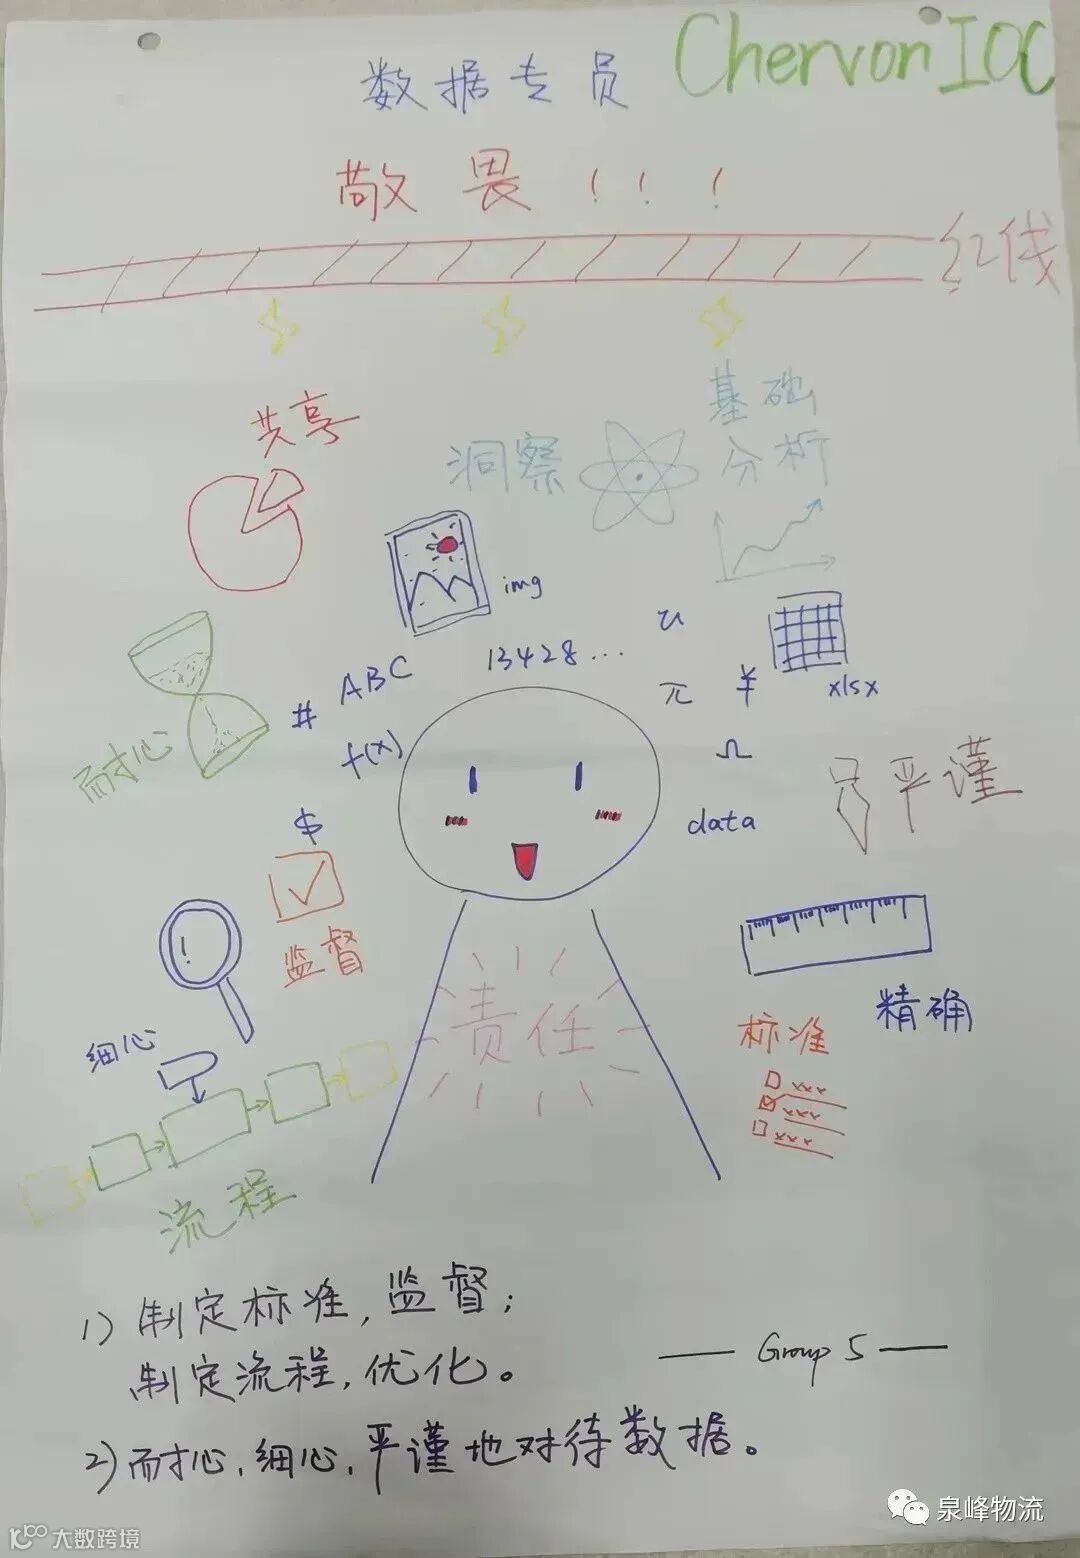 数据专员
Chervon IOC
敬畏！！！
红线
共享
洞察
基础
分析
img
13428...
ABC
#
f(x)
π
¥
xlsx
Ω
data
耐心
$
严谨
监督
!
细心
责任
精确
标准
xxx
xxx
xxx
流程
1) 制定标准，监督；
制定流程，优化。
—— Group 5 ——
2) 耐心，细心，严谨地对待数据。
泉峰物流
大数跨境